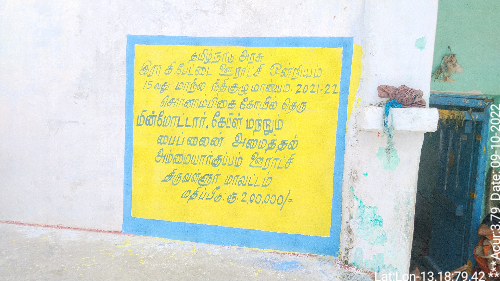 தமிழ்நாடு அரசு
இரா.கி.பேட்டை ஊராட்சி ஒன்றியம்
15 வது மாநில நிதிகுழு மானியம் 2021-22
கோயில் தெரு
மின்மோட்டார், கேபிள் மற்றும்
பைப்லைன் அமைத்தல்
அம்மையார்குப்பம் ஊராட்சி
திருவள்ளூர் மாவட்டம்
மதிப்பீடு. ரூ. 2,00,000/-
Lat Lon-13.18:79.42
***Acur:3.79 Date: 09-10-2022